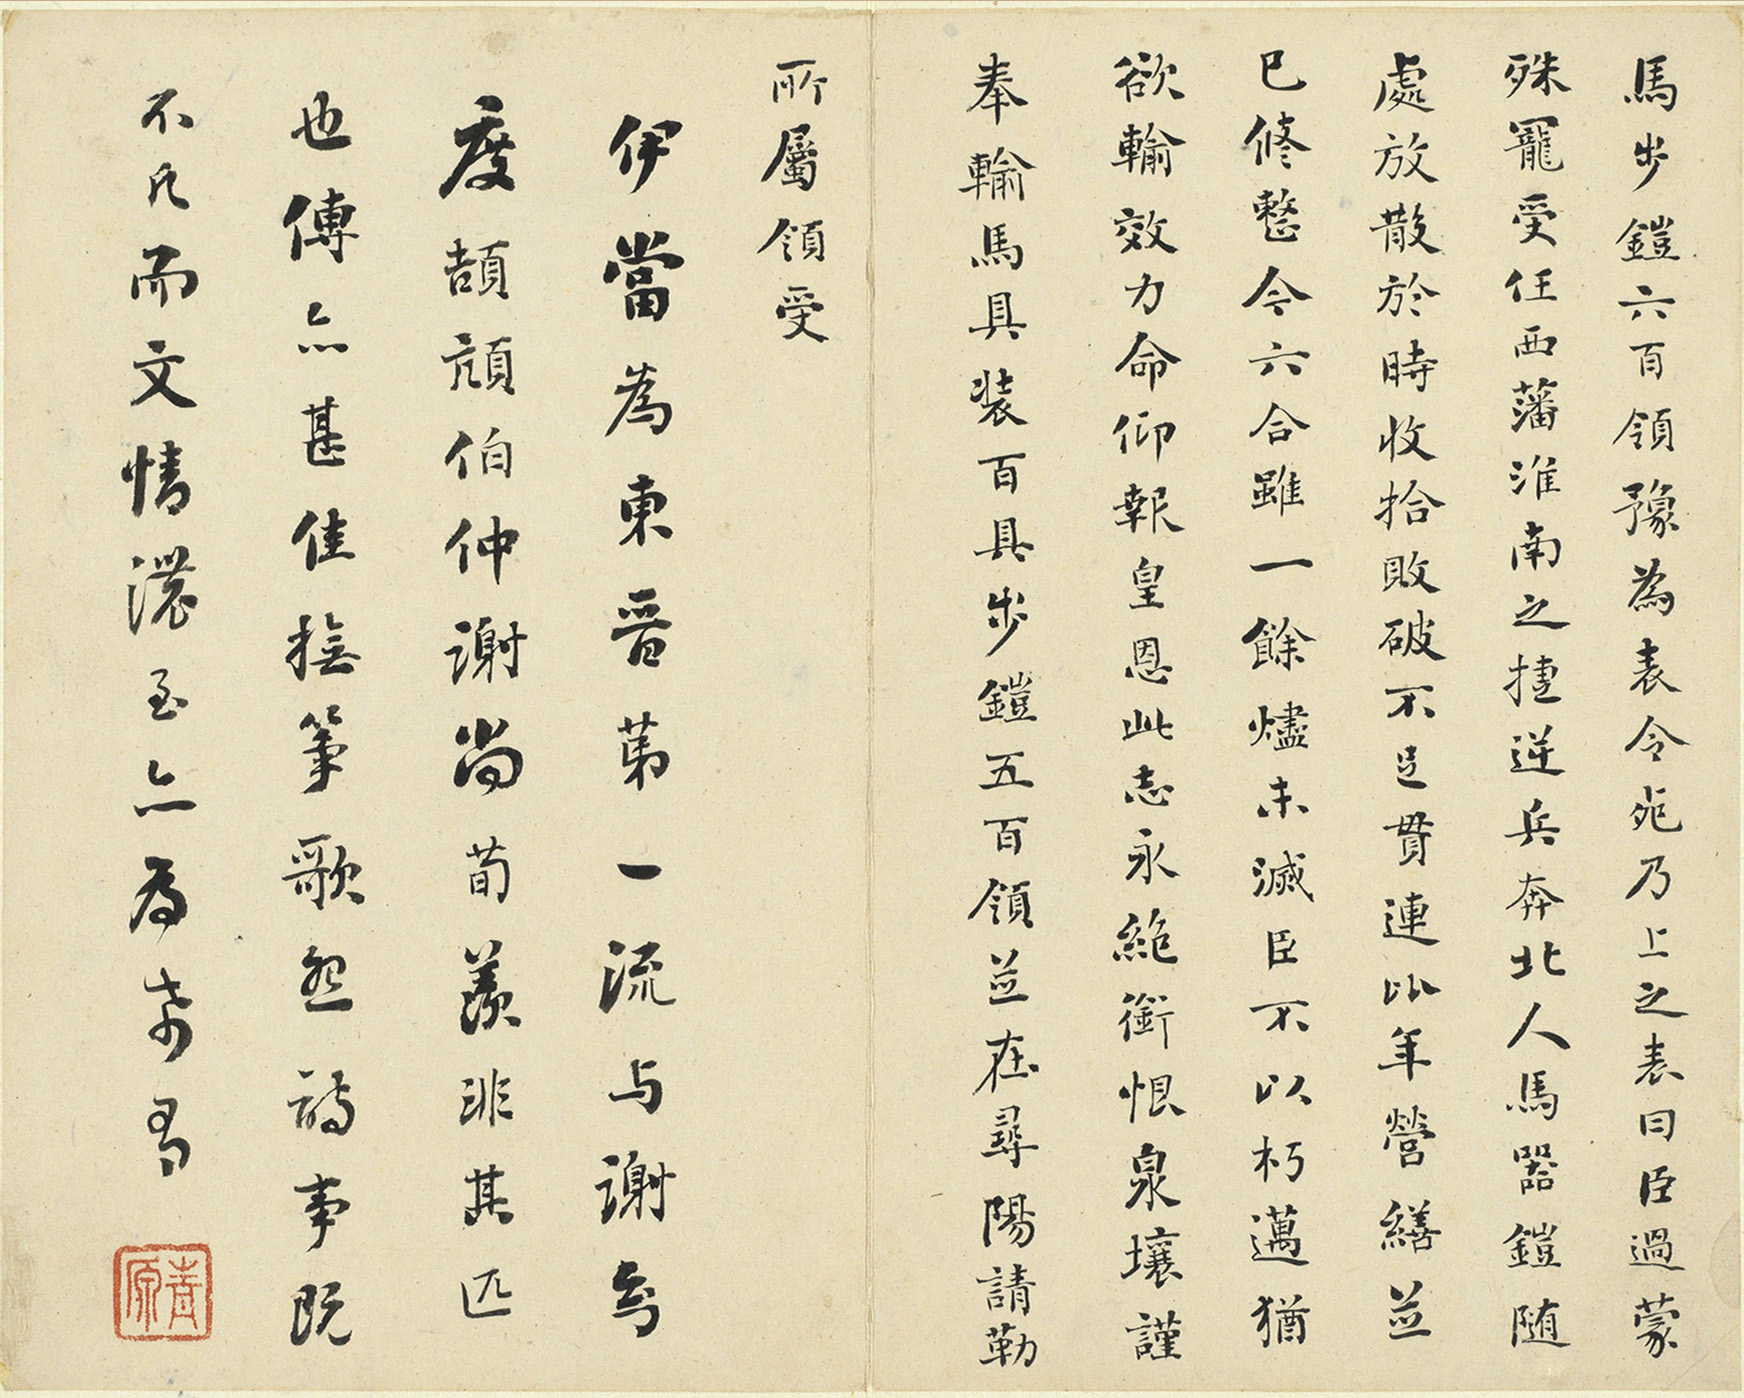 馬步鎧六百領豫為表令死乃上之表曰臣過蒙
殊寵受任西藩淮南之捷逆兵奔北人馬器鎧随
處放散於時收拾敗破不足貫連比年營繕並
已修整今六合雖一餘燼未滅臣不以朽邁猶
欲輸效力命仰報皇恩此志永絶銜恨泉壤謹
奉輸馬具装百具步鎧五百領並在尋陽請勒
所屬領受
伊當為東晋苐一流与謝安
度頡頏伯仲謝尚荀羨非其匹
也傳亦甚佳撫筝歌怨詩事既
不凡而文情濃至亦為希有
壽原